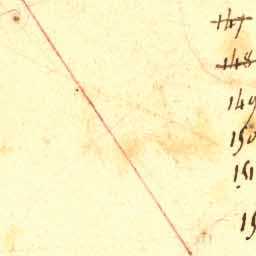 147
148
149
150
151
15